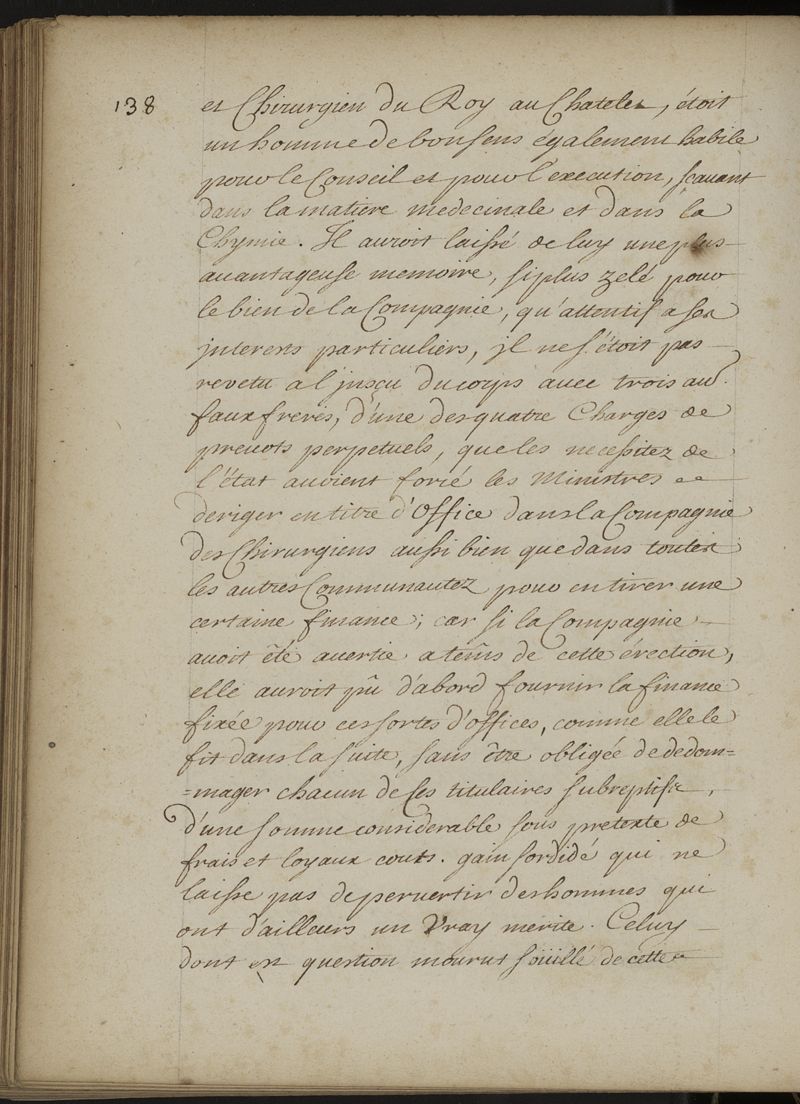 138
et Chirurgien du Roy au Chatelet, étoit
un homme de bon sens également habile
pour le Conseil et pour l'execution, sçavant
dans la matiere medecinale et dans la
Chymie. Il auroit laissé de luy une plus
avantageuse memoire, si plus zelé pour
le bien de la Compagnie, qu'attentif a ses
jnterests particuliers, jl ne s'étoit pas
revetu a l'jnsçu du corps avec trois aut.
faux freres, d'une des quatre Charges de
prevots perpetuels, que les necessitez de
l'état avoient forcé les Ministres
deriger en titre d'Office dans la Compagnie
des Chirurgiens aussi bien que dans toutes
les autres Communautez pour en tirer une
certaine finance; car si la Compagnie
avoit été avertie a tems de cette érection,
elle auroit pû d'abord fournir la finance
fixée pour ces sortes d'offices, comme elle le
fit dans la suite, sans être obligée de dedom=
=mager chacun de ses titulaires subreptifs,
d'une somme considerable sous pretexte de
frais et loyaux couts. gain sordide qui ne
laisse pas de pervertir des hommes qui
ont d'ailleurs un Vray merite. Celuy
dont est question mourut soüillé de cette